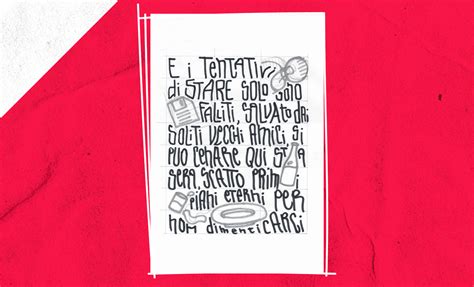 E i TENTATIVI
di STARE SOLO SOLO
FALLITI, SALVATO DAI
SOLITI VECCHI AMICI Si
PUO CENARE QUI STA
SERA, SCATTO PRIMI
PIANI ETERNI PER
NON DIMENTICARCI